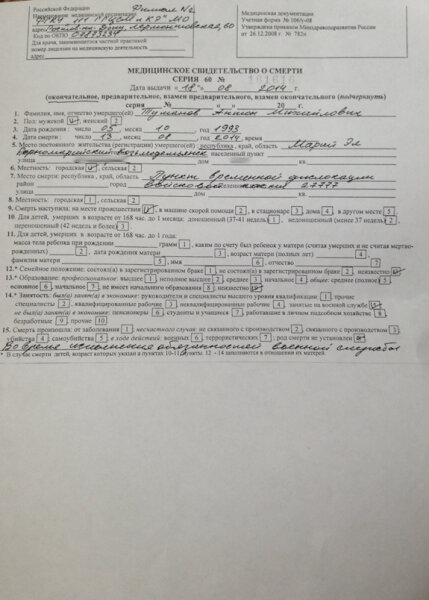 Российской Федерации
Медицинская документация
Наименование медицинской организации
Филиал №2
Учетная форма № 106/у-08
ФГКУ "1602 ВКГ" МО
Утверждена приказом Минздравсоцразвития России
адрес Ростов-на-Дону, 60
от 26.12.2008 г. № 782н
Код по ОКПО
Для врача, занимающегося частной практикой
номер лицензии на медицинскую деятельность
МЕДИЦИНСКОЕ СВИДЕТЕЛЬСТВО О СМЕРТИ
СЕРИЯ 60 №
Дата выдачи «18» 08 2014 г.
(окончательное, предварительное, взамен предварительного, взамен окончательного (подчеркнуть)
серия № « » 20 г.
1. Фамилия, имя, отчество умершего(ей) Туманов Антон Михайлович
2. Пол: мужской 1, женский 2
3. Дата рождения: число 05, месяц 10, год 1993
4. Дата смерти: число 13, месяц 08, год 2014, время
5. Место постоянного жительства (регистрации) умершего(ей) республика, край, область Марий Эл
Козьмодемьянск населенный пункт
улица дом кв.
6. Местность: городская 1, сельская 2
7. Место смерти: республика, край, область Пункт временной дислокации
район город войсковой части 27777
улица дом кв.
8. Местность: городская 1, сельская 2
9. Смерть наступила: на месте происшествия 1, в машине скорой помощи 2, в стационаре 3, дома 4, в другом месте 5
10. Для детей, умерших в возрасте от 168 час. до 1 месяца: доношенный (37-41 недель) 1, недоношенный (менее 37 недель) 2,
переношенный (42 недель и более) 3
11. Для детей, умерших в возрасте от 168 час. до 1 года:
масса тела ребенка при рождении грамм 1, каким по счету был ребенок у матери (считая умерших и не считая мертво-
рожденных) 2, дата рождения матери 3, возраст матери (полных лет) 4
фамилия матери 5, имя 6, отчество 7
12.* Семейное положение: состоял(а) в зарегистрированном браке 1, не состоял(а) в зарегистрированном браке 2, неизвестно 3
13.* Образование: профессиональное: высшее 1, неполное высшее 2, среднее 3, начальное 4; общее: среднее (полное) 5,
основное 6, начальное 7, не имеет начального образования 8; неизвестно 9
14.* Занятость: был(а) занят(а) в экономике: руководители и специалисты высшего уровня квалификации 1, прочие
специалисты 2, квалифицированные рабочие 3, неквалифицированные рабочие 4, занятые на военной службе 5;
не был(а) занят(а) в экономике: пенсионеры 6, студенты и учащиеся 7, работавшие в личном подсобном хозяйстве 8,
безработные 9, прочие 10
15. Смерть произошла: от заболевания 1; несчастного случая: не связанного с производством 2, связанного с производством 3;
убийства 4; самоубийства 5; в ходе действий: военных 6, террористических 7; род смерти не установлен 8
Во время исполнения обязанностей военной службы
* В случае смерти детей, возраст которых указан в пунктах 10-11, пункты 12 - 14 заполняются в отношении их матерей.